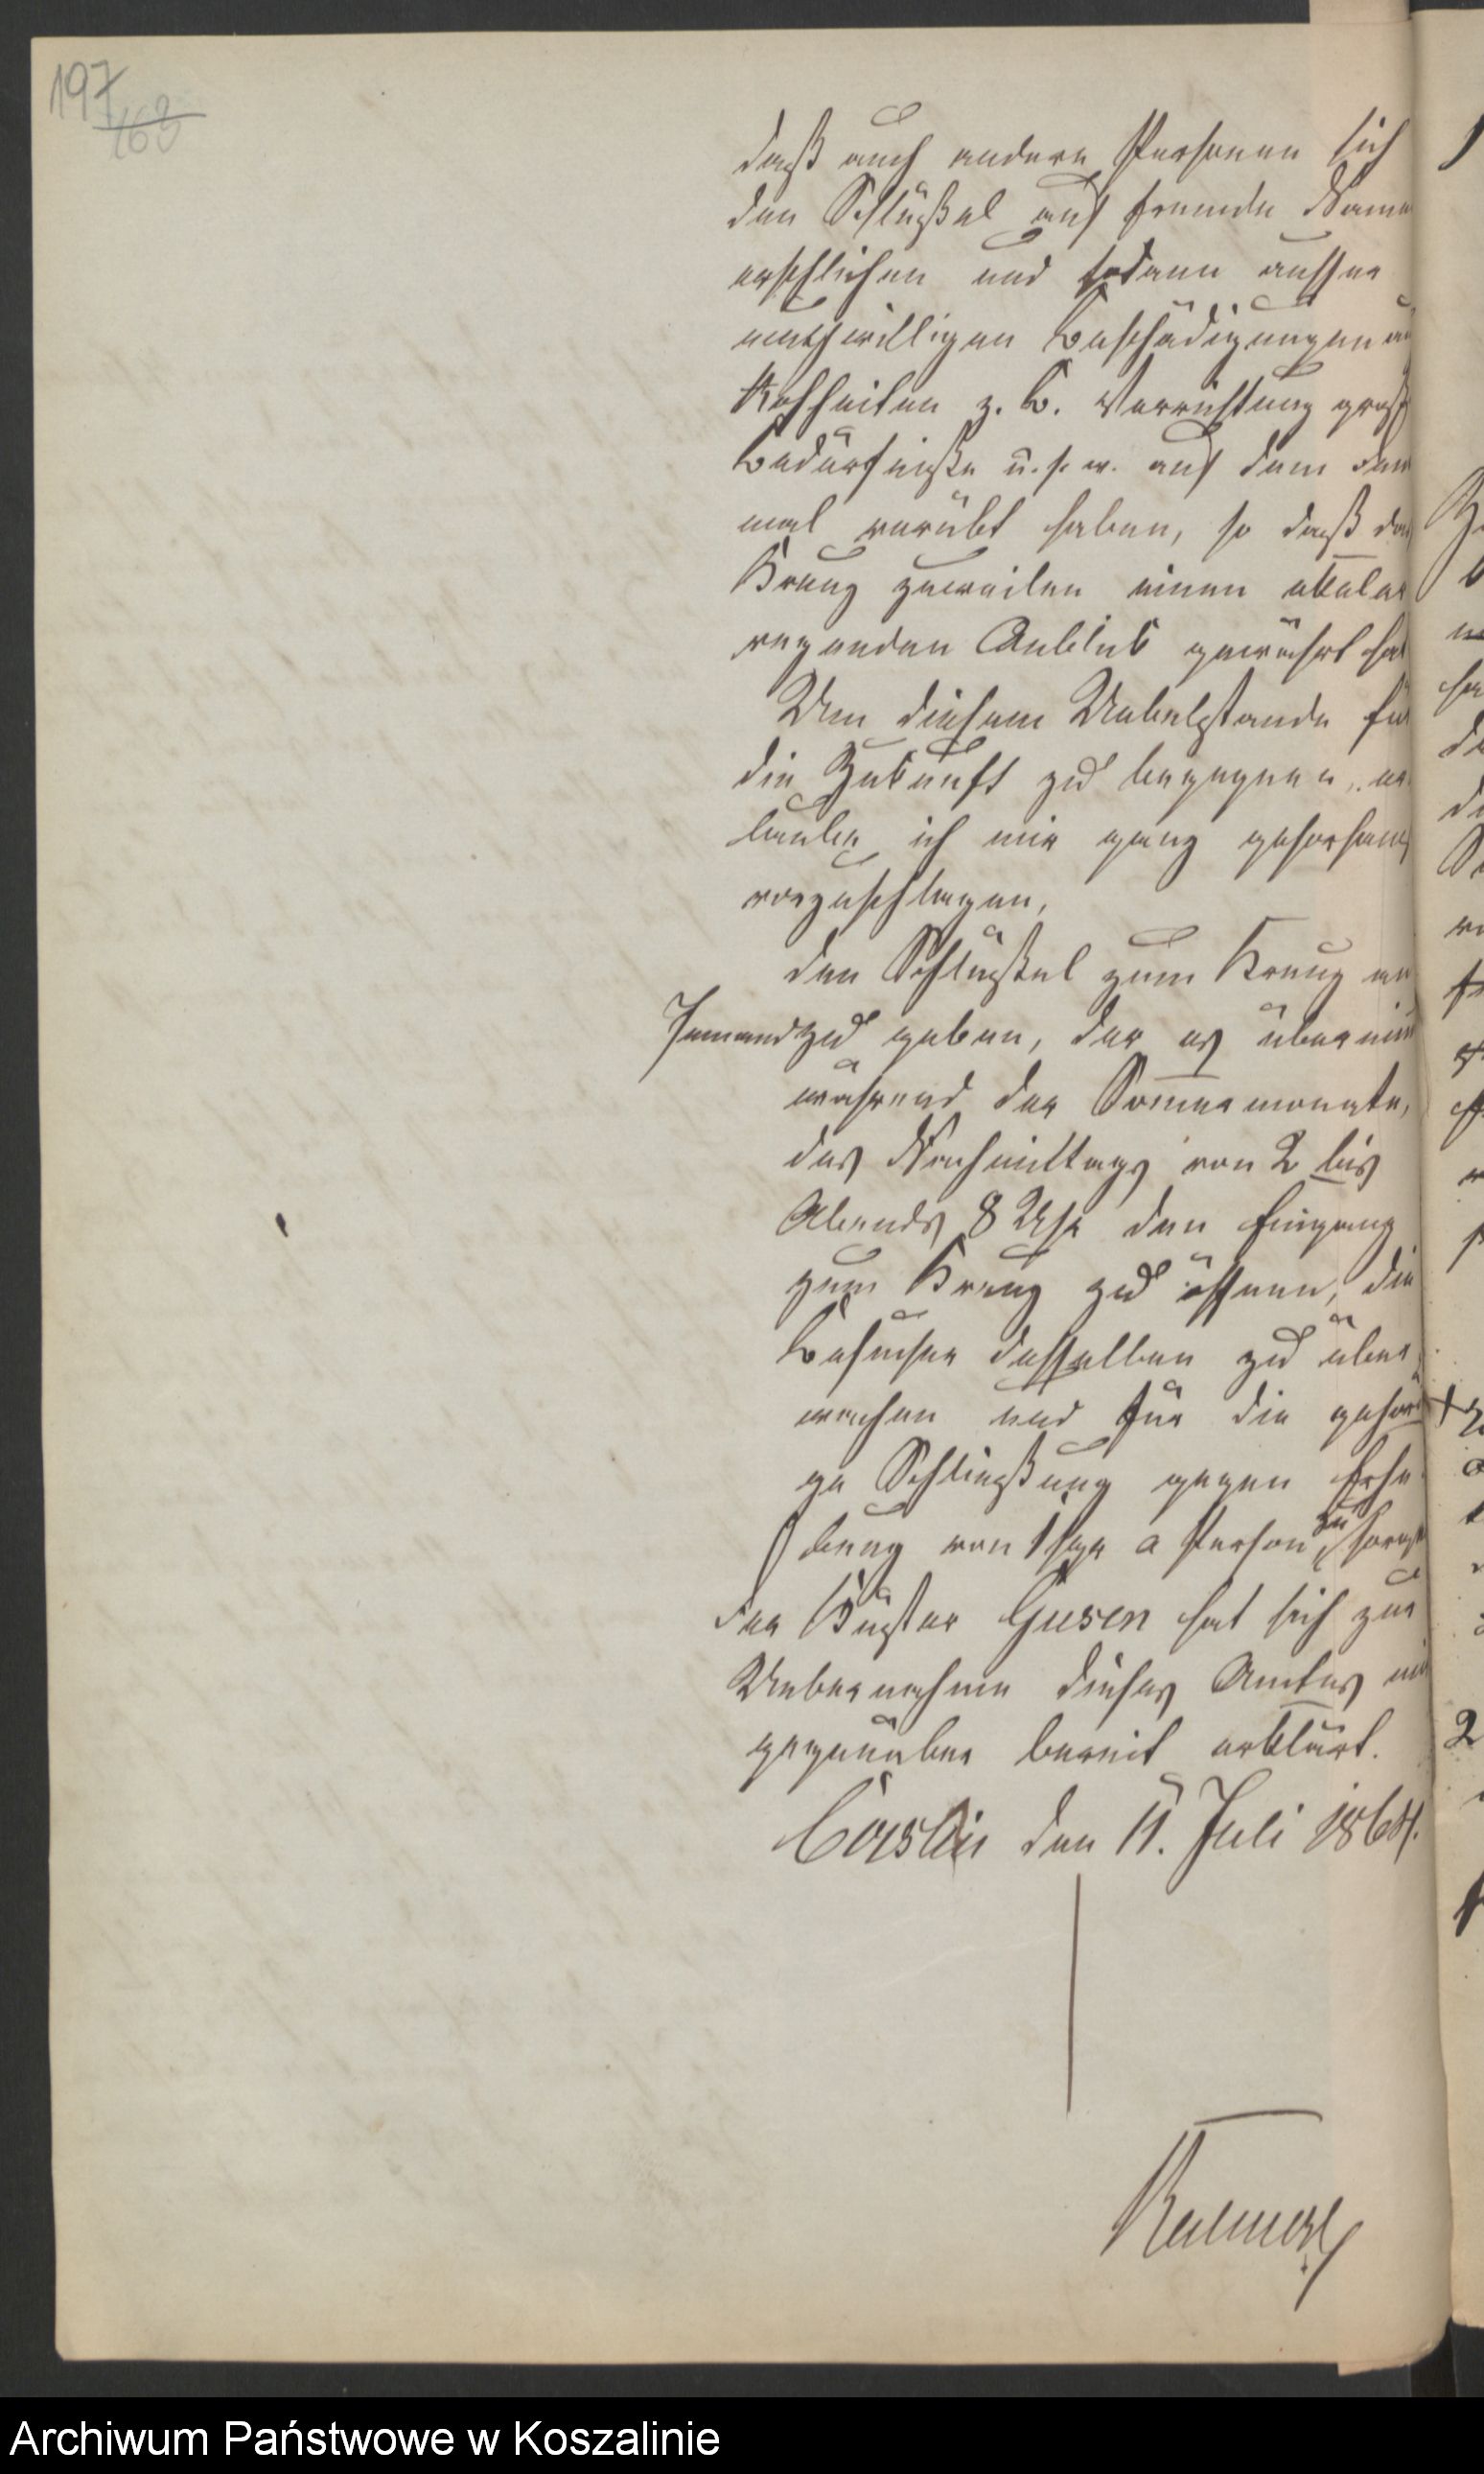 197
163
daß auch andere Personen sich
den Schlüßel auf fremde Name
erschlichen und sodann ausser
muthwilligen Beschädigungen
Rohheiten z. B. Verrichtung groß
Bedürfniße u. s. w. auf dem Denk
mal verübt haben, so daß das
Kreuz zuweilen einen ekeler
regenden Anblick gewährt hat
Um diesem Uebelstande für
die Zukunft zu begegnen, er
laube ich mir ganz gehorsamst
vorzuschlagen,
den Schlüßel zum Kreuz an
Jemand zu geben, der es übernim̄t
während der Som̄ermonate,
des Nachmittags von 2 bis
Abends 8 Uhr den Eingang
zum Kreuz zu öffnen, die
Besucher desselben zu über
wachen und für die gehöri
ge Schließung gegen Erhe
bung von 1 sgr a Person zu sorgen
der Küster Gusen hat sich zur
Uebernahme dieses Amtes mir
gegenüber bereit erklärt.
Cöslin den 11. Juli 1864.
Archiwum Państwowe w Koszalinie